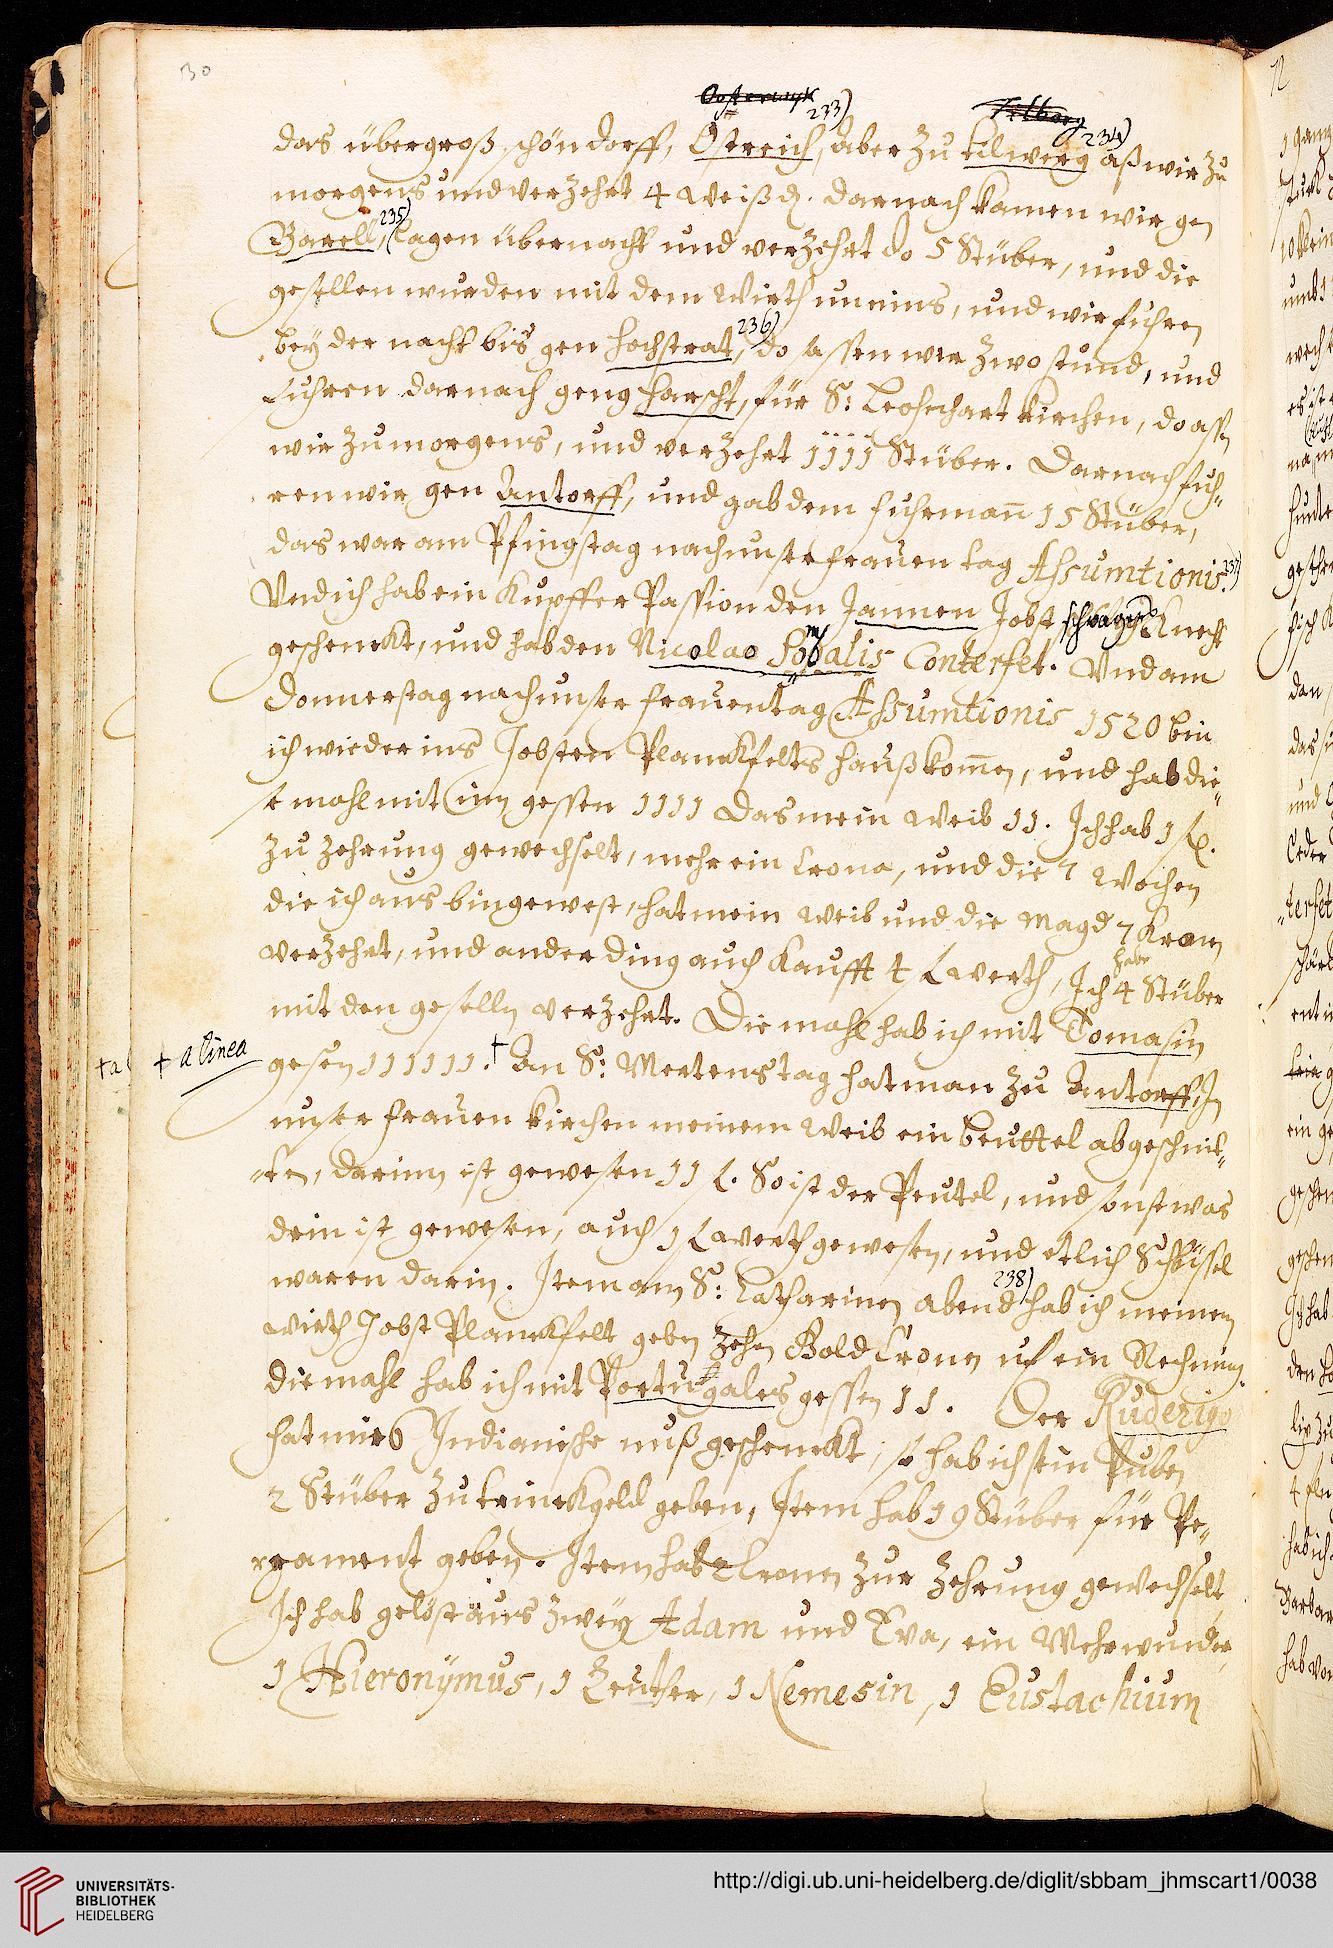 30
Oosterwyk 233) Tilborg 234)
das übergroß schön dorff, Ostreich, Aber zu tilwerg aß wir zu
morgens und verzehrt 4 weiß d. darnach kamen wir gen
Barell, 235) lagen übernacht und verzehrt do 5 Stüber, und die
gesellen wurden mit dem Wirth uneins, und wir fuhren
bey der nacht bis gen Hochstrat, 236) do sassen wir zwo stund, und
fuhren darnach geng Harscht, für S: Leohrhart kirchen, do assn
wir zu morgens, und verzehrt 1111 Stüber. Darnach fuh=
ren wir gen Antorff, und gab dem fuhrman̄ 15 Stüber,
das war am Pfingstag nach unser frauen tag Assumtionis. 237)
Und ich hab ein Kupffer Passion den Jannen Jobst schwagers Knecht
geschenckt, und hab den Nicolao Sombalis Conterfet. Und am
Donnerstag nach unser frauentag Assumtionis 1520 bin
ich wieder ins Jobsten Planckfelts hauß kom̄en, und hab die=
se mahl mit im gessen 1111 Das mein Weib 11. Ich hab 1 fl.
zu zehrung gewechselt, mehr ein Crona, und die 7 Wochen
die ich aus bin gewest, hat mein Weib und die Magd 7 Kronen
verzehrt, und ander ding auch kaufft 4 fl werth, Ich habe 4 Stüber
mit den geselln verzehrt. Die mahl hab ich mit Tomasin
† a linea gesen 111111. † An S: Mertenstag hat man zu Antorff, In
unser frauen kirchen meinem Weib ein beuttel abgeschnit=
=ten, darinn ist gewesen 11 fl. So ist der Peutel, und sonst was
drin ist gewesen, auch 1 fl werth gewesen, und etlich Schlüssel
waren darin. Item am S: Catharinen abend 238) hab ich meinem
Wirth Jobst Planckfelt geben zehn Gold Cronen uf ein Rechnung
die mahl hab ich mit Portugales gessen 11. Der Ruderigo
hat mir 6 Indianische nuß geschenckt, so hab ich sein Puben
2 Stüber zu trinckgeld geben, Item hab 19 Stüber für Pe=
rgament geben. Item hab 2 Cronen zur zehrung gewechselt
Ich hab gelöst aus zwey Adam und Eva, ein Mehrwunder,
1 Hieronymus, 1 Reutter, 1 Nemesin, 1 Eustachium
UNIVERSITÄTS-
BIBLIOTHEK
HEIDELBERG
http://digi.ub.uni-heidelberg.de/diglit/sbbam_jhmscart1/0038